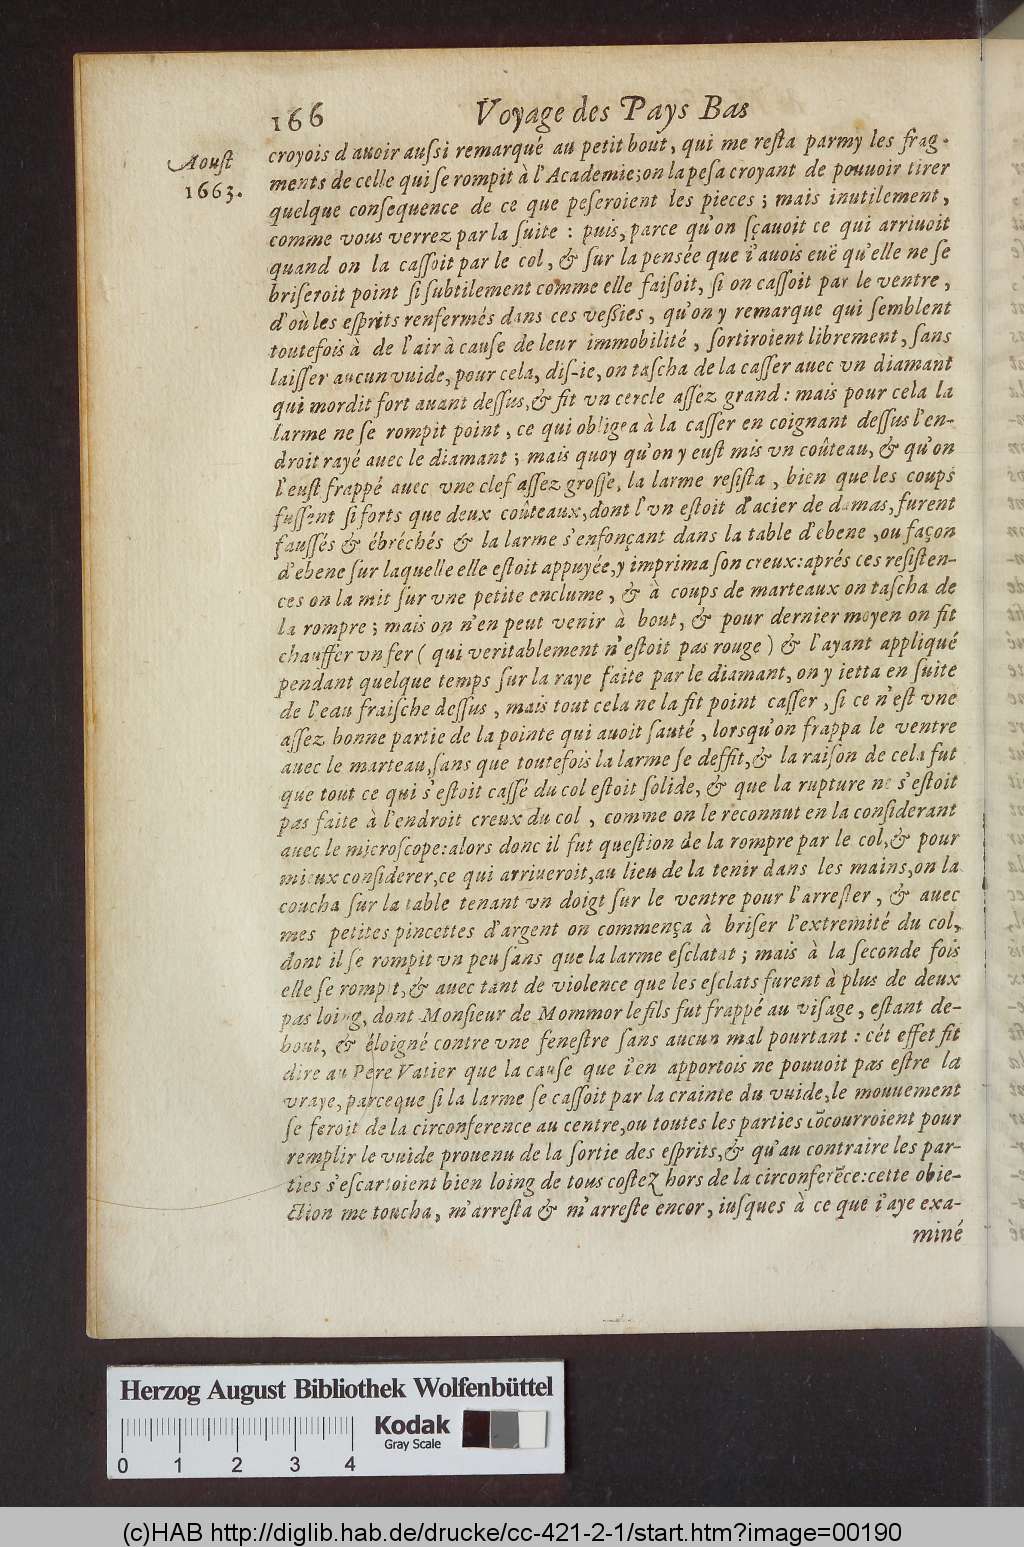 166 Voyage des Pays Bas
Aoust
1663.
croyois d'auoir aussi remarqué au petit bout, qui me resta parmy les frag-
ments de celle qui se rompit à l'Academie; on la pesa croyant de pouuoir tirer
quelque consequence de ce que peseroient les pieces; mais inutilement,
comme vous verrez par la suite : puis, parce qu'on sçauoit ce qui arriuoit
quand on la cassoit par le col, & sur la pensée que i'auois euë qu'elle ne se
briseroit point si subtilement comme elle faisoit, si on cassoit par le ventre,
d'où les esprits renfermés dans ces vessies, qu'on y remarque qui semblent
toutefois à de l'air à cause de leur immobilité, sortiroient librement, sans
laisser aucun vuide, pour cela, dis-ie, on tascha de la casser auec vn diamant
qui mordit fort auant dessus, & fit vn cercle assez grand : mais pour cela la
larme ne se rompit point, ce qui obligea à la casser en coignant dessus l'en-
droit rayé auec le diamant; mais quoy qu'on y eust mis vn coûteau, & qu'on
l'eust frappé auec vne clef assez grosse, la larme resista, bien que les coups
fussent si forts que deux coûteaux, dont l'vn estoit d'acier de damas, furent
faussés & ébréchés & la larme s'enfonçant dans la table d'ebene, ou façon
d'ebene sur laquelle elle estoit appuyée, y imprima son creux: aprés ces resisten-
ces on la mit sur vne petite enclume, & à coups de marteaux on tascha de
la rompre; mais on n'en peut venir à bout, & pour dernier moyen on fit
chauffer vn fer ( qui veritablement n'estoit pas rouge ) & l'ayant appliqué
pendant quelque temps sur la raye faite par le diamant, on y ietta en suite
de l'eau fraische dessus, mais tout cela ne la fit point casser, si ce n'est vne
assez bonne partie de la pointe qui auoit sauté, lorsqu'on frappa le ventre
auec le marteau, sans que toutefois la larme se deffit, & la raison de cela fut
que tout ce qui s'estoit cassé du col estoit solide, & que la rupture ne s'estoit
pas faite à l'endroit creux du col, comme on le reconnut en la considerant
auec le microscope: alors donc il fut question de la rompre par le col, & pour
mieux considerer, ce qui arriueroit, au lieu de la tenir dans les mains, on la
coucha sur la table tenant vn doigt sur le ventre pour l'arrester, & auec
mes petites pincettes d'argent on commença à briser l'extremité du col,
dont il se rompit vn peu sans que la larme esclatat; mais à la seconde fois
elle se rompit, & auec tant de violence que les esclats furent à plus de deux
pas loing, dont Monsieur de Mommor le fils fut frappé au visage, estant de-
bout, & éloigné contre vne fenestre sans aucun mal pourtant : cét effet fit
dire au Pere Vatier que la cause que i'en apportois ne pouuoit pas estre la
vraye, parce que si la larme se cassoit par la crainte du vuide, le mouuement
se feroit de la circonference au centre, ou toutes les parties cõcourroient pour
remplir le vuide prouenu de la sortie des esprits, & qu'au contraire les par-
ties s'escartoient bien loing de tous costez hors de la circonferẽce: cette obie-
ction me toucha, m'arresta & m'arreste encor, iusques à ce que i'aye exa-
miné
Herzog August Bibliothek Wolfenbüttel
Kodak
Gray Scale
0 1 2 3 4
(c)HAB http://diglib.hab.de/drucke/cc-421-2-1/start.htm?image=00190